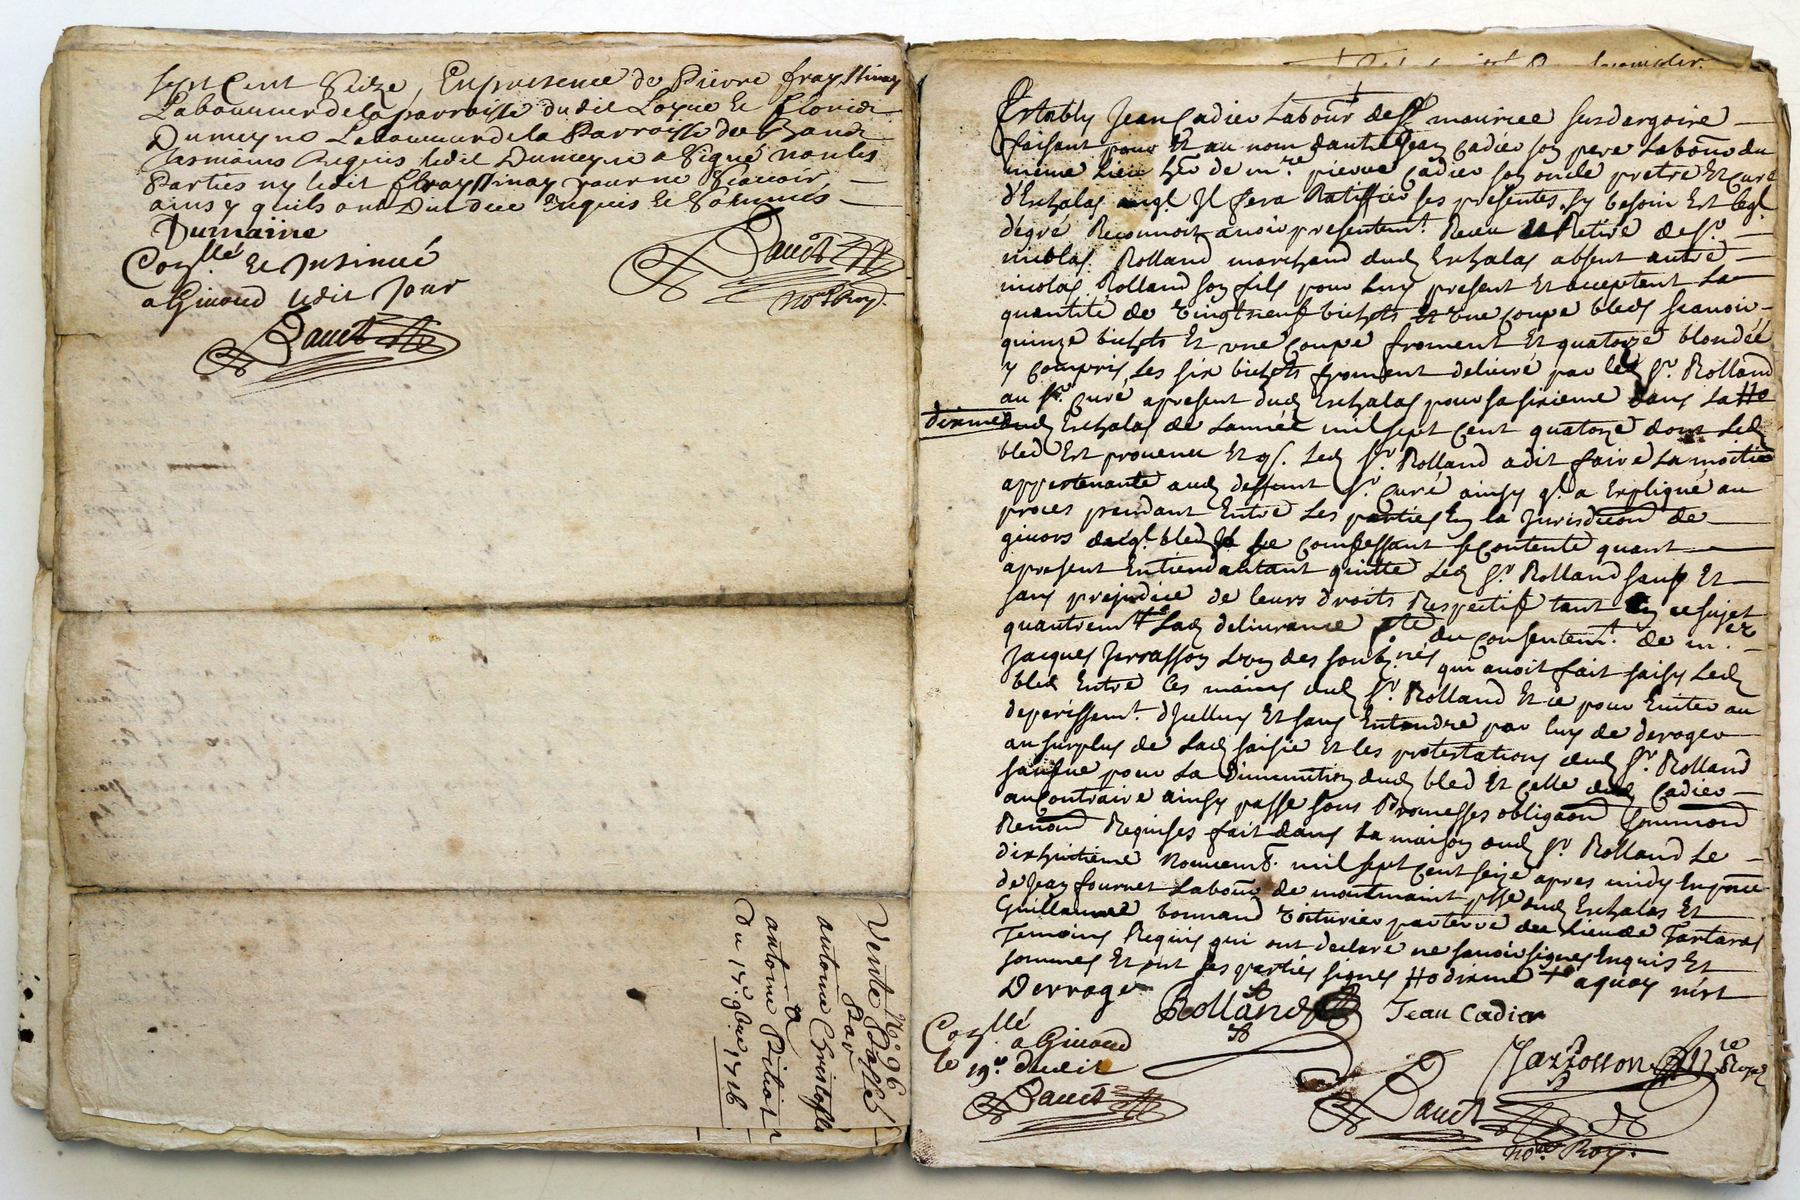 sept Cent Seize, En presence de Pierre frayssinay
Laboureur de la parroisse dudit Loyre Et
Dumeyne Laboureur de la Parroisse de
Requis Ledit Dumeyne a Signé non les
Parties ny Ledit frayssinay pour ne Scavoir
ainsy quils ont Dit due Enquis Et Sommés
Dumaine
Conllé Et Insinué
a Givord Ledit Jour
Dauit
Dauit
Nore Roy.
Vente No 96
Passée
Par
antoine Christofle
a
antoine Pitiot
Du 17e 9bre 1716
Estably Jean Cadier Labour de St maurice sur dargoire
faisant pour Et au nom dautre Jean Cadier son pere Labour du
mème Lieu her de mre pierre Cadier son oncle pretre Et Curé
d'Eschalas Il fera Ratiffier ses presentes sy besoin Est Leql
dégré Reconnoit avoir presentemt Receu et Retiré de Sr
nicolas Rolland marchand dud Eschalas absent autre
nicolas Rolland son fils pour Luy present Et acceptent La
quantité de vingt neuf bichets Et une coupe bleds scavoir
quinze bichets Et une Coupe froment Et quatorze blondée
y compris Les six bichets froment delivré par led Sr Rolland
au Sr Curé apresent dud Eschalas pour sa sixieme dans La
dixme dud Eschalas de Lannée mil sept Cent quatorze dont Led
bled Est provenu Et q. Led Sr Rolland a dit faire La moitié
appartenante aud deffunt Sr Curé ainsy ql a Expliqué au
proces pendant Entre Les parties En la Jurisdiction de
givors duql bled Il se Confessant se Contente quant
apresent Entiend autant quitte Led Sr Rolland sauf Et
sans prejudice de leurs droits Respectifs tant En ce sujet
quautremt Lad delivrance faite du Consentemt de mre
Jacques Jarrosson Lun des soub.nés qui avoit fait saisy Led
bled Entre Les mains dud Sr Rolland Et ce pour Eviter au
deperissemt dIcelluy Et sans Entendre par luy de deroger
au surplus de Lad saisie Et les protestations dud Sr Rolland
sauf que pour La Diminution dud bled Et Celle dud Cadier
au Contraire ainsy passé sous Promesses obligaon
Renond Requises fait dans La maison dud Sr Rolland Le
dixhuitieme novembr. mil sept Cent seize apres midy En pnce
de Jean fournet Labour de montmaint psse dud Eschalas Et
Guillaume bonnand voiturier par terre du Lieu de Tartaras
Temoins Requis qui ont declaré ne scavoir signer Enquis Et
sommes Et ont Les parties signes dixme aquoy n'est
Derrogé
Rolland
Jean Cadier
Conllé a Givord
le 19e dudit
Dauit
Jarrosson Nre Royal
Dauit
nore Roy.